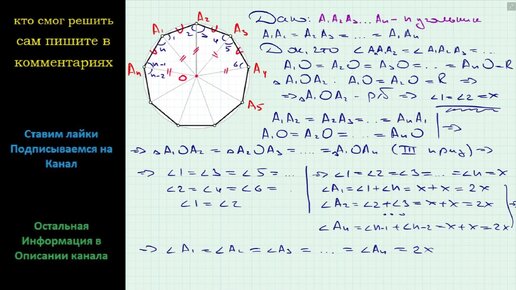 кто смог решить
сам пишите в
комментариях
Ставим лайки
Подписываемся на
Канал
Остальная
Информация в
Описании канала
A₁ A₂ A₃ A₄ A₅ Aₙ O
1 2 3 4 5 6
n-1
n-2
Дано: A₁A₂A₃...Aₙ - n угольник
A₁A₂ = A₂A₃ = ... = A₁Aₙ
A₁O = A₂O = A₃O = ... = AₙO = R
△A₁OA₂ - A₁O = A₂O = R ⇒
⇒ △A₁OA₂ - р/б ⇒ ∠1 = ∠2 = x
A₁A₂ = A₂A₃ = ... = AₙA₁
A₁O = A₂O = ... = AₙO | ⇒
⇒ △A₁OA₂ = △A₂OA₃ = ... = △A₁OAₙ (III приз) ⇒
⇒ ∠1 = ∠3 = ∠5 = ...
∠2 = ∠4 = ∠6 = ...
∠1 = ∠2
⇒ ∠1 = ∠2 = ∠3 = ... = ∠n = x
∠A₁ = ∠1 + ∠n = x + x = 2x
∠A₂ = ∠2 + ∠3 = x + x = 2x
...
∠Aₙ = ∠n-1 + ∠n-2 = x + x = 2x
⇒ ∠A₁ = ∠A₂ = ∠A₃ = ... = ∠Aₙ = 2x